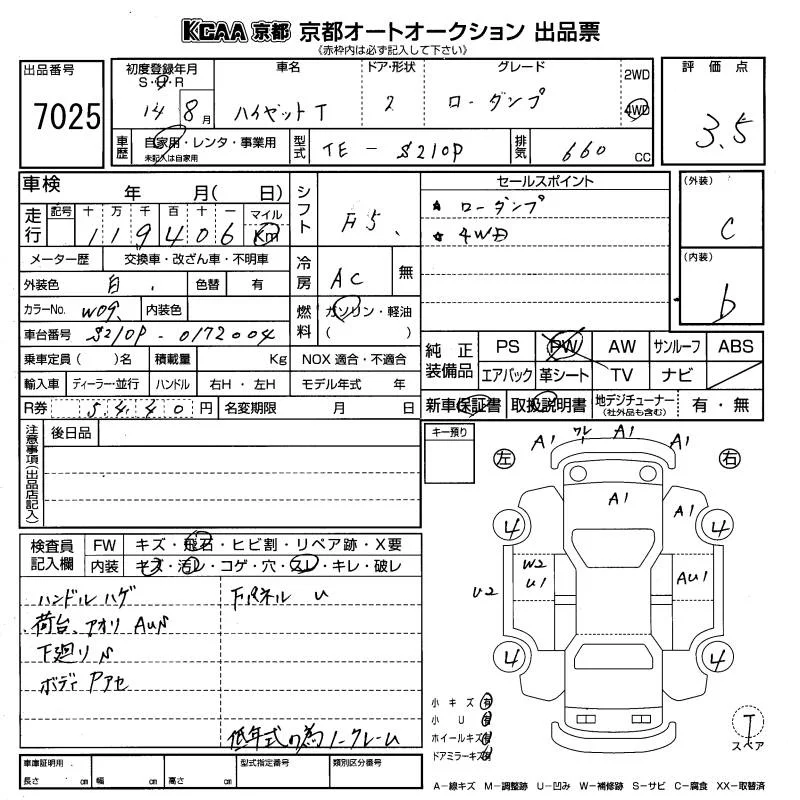 KCAA 京都 京都オートオークション 出品票
(赤枠内は必ず記入して下さい)
出品番号
7025
初度登録年月
S・H・R
14 8月
車名
ハイゼットT
ドア・形状
2
グレード
ローダンプ
2WD
4WD
評価点
3.5
車歴
自家用・レンタ・事業用
未記入は自家用
型式
TE-S210P
排気
660 CC
車検 年 月( 日)
走行
記号 十 万 千 百 十 一 マイル
119406 Km
メーター歴 交換車・改ざん車・不明車
外装色 白 色替 有
カラーNo. W09 内装色
車台番号 S210P-0172004
乗車定員 ( )名 積載量 Kg NOX 適合・不適合
輸入車 ディーラー・並行 ハンドル 右H・左H モデル年式 年
R券 5440円 名変期限 月 日
シフト F5
冷房 AC 無
燃料 ガソリン・軽油
( )
セールスポイント
★ ローダンプ
★ 4WD
(外装)
C
(内装)
b
純正装備品
PS PW AW サンルーフ ABS
エアバック 革シート TV ナビ
新車保証書 取扱説明書 地デジチューナー(社外品も含む) 有・無
注意事項(出品店記入)
後日品
キー預り
検査員記入欄
FW キズ・飛石・ヒビ割・リペア跡・X要
内装 キズ・汚レ・コゲ・穴・スレ・キレ・破レ
ハンドルハゲ
荷台、アオリ AUS
下廻りS
ボディPアセ
下パネル U
低年式の為ノークレーム
左 右
A1 ワレ A1 A1
A1 A1
4 4
W2
U1
U2
AU1
4 4
小キズ 有
小U 有
ホイールキズ 有
ドアミラーキズ 有
T
スペア
車庫証明用
長さ cm 幅 cm 高さ cm
型式指定番号 類別区分番号
A-線キズ M-調整跡 U-凹み W-補修跡 S-サビ C-腐食 XX-取替済